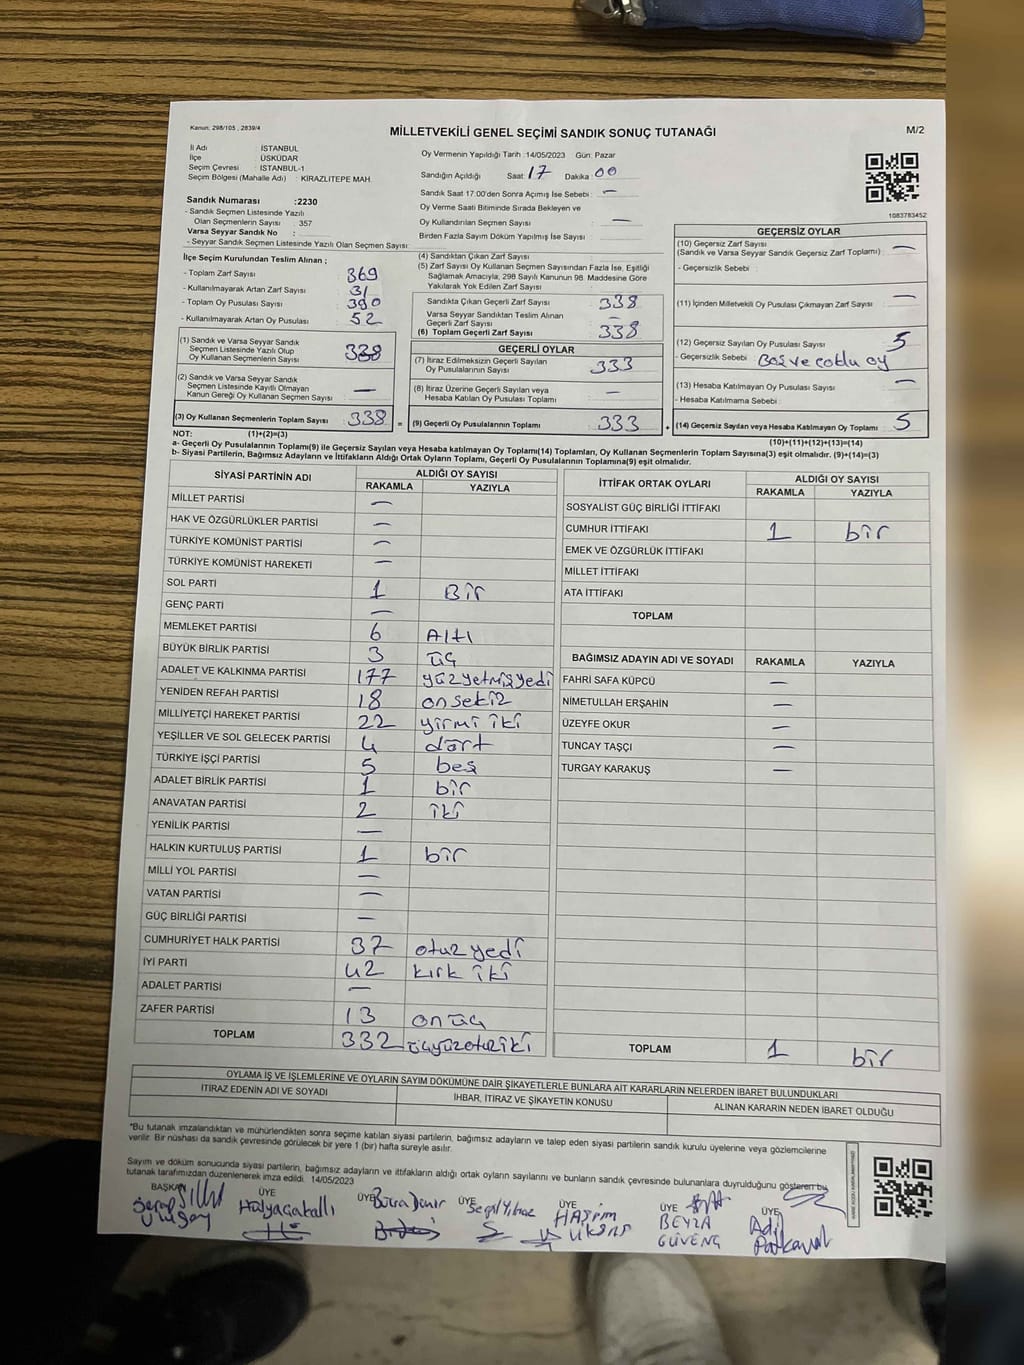 Kanun: 298/105 , 2839/4
MİLLETVEKİLİ GENEL SEÇİMİ SANDIK SONUÇ TUTANAĞI
M/2
İl Adı : İSTANBUL
İlçe : ÜSKÜDAR
Seçim Çevresi : İSTANBUL-1
Seçim Bölgesi (Mahalle Adı) : KİRAZLITEPE MAH.
Sandık Numarası :2230
- Sandık Seçmen Listesinde Yazılı
Olan Seçmenlerin Sayısı : 357
Varsa Seyyar Sandık No :
- Seyyar Sandık Seçmen Listesinde Yazılı Olan Seçmen Sayısı:
Oy Vermenin Yapıldığı Tarih :14/05/2023 Gün: Pazar
Sandığın Açıldığı Saat: 17 Dakika: 00
Sandık Saat 17:00'den Sonra Açımış İse Sebebi : —
Oy Verme Saati Bitiminde Sırada Bekleyen ve
Oy Kullandırılan Seçmen Sayısı : —
Birden Fazla Sayım Döküm Yapılmış İse Sayısı :
1083783452
İlçe Seçim Kurulundan Teslim Alınan ;
- Toplam Zarf Sayısı : 369
- Kullanılmayarak Artan Zarf Sayısı : 31
- Toplam Oy Pusulası Sayısı : 390
- Kullanılmayarak Artan Oy Pusulası : 52
(1) Sandık ve Varsa Seyyar Sandık
Seçmen Listesinde Yazılı Olup
Oy Kullanan Seçmenlerin Sayısı : 338
(2) Sandık ve Varsa Seyyar Sandık
Seçmen Listesinde Kayıtlı Olmayan
Kanun Gereği Oy Kullanan Seçmen Sayısı : —
(3) Oy Kullanan Seçmenlerin Toplam Sayısı : 338 =
(4) Sandıktan Çıkan Zarf Sayısı :
(5) Zarf Sayısı Oy Kullanan Seçmen Sayısından Fazla İse, Eşitliği
Sağlamak Amacıyla, 298 Sayılı Kanunun 98. Maddesine Göre
Yakılarak Yok Edilen Zarf Sayısı :
Sandıkta Çıkan Geçerli Zarf Sayısı : 338
Varsa Seyyar Sandıktan Teslim Alınan
Geçerli Zarf Sayısı : —
(6) Toplam Geçerli Zarf Sayısı : 338
GEÇERLİ OYLAR
(7) İtiraz Edilmeksizin Geçerli Sayılan
Oy Pusulalarının Sayısı : 333
(8) İtiraz Üzerine Geçerli Sayılan veya
Hesaba Katılan Oy Pusulası Toplamı : —
(9) Geçerli Oy Pusulalarının Toplamı : 333 +
GEÇERSİZ OYLAR
(10) Geçersiz Zarf Sayısı
(Sandık ve Varsa Seyyar Sandık Geçersiz Zarf Toplamı) : —
- Geçersizlik Sebebi :
(11) İçinden Milletvekili Oy Pusulası Çıkmayan Zarf Sayısı : —
(12) Geçersiz Sayılan Oy Pusulası Sayısı : 5
- Geçersizlik Sebebi : Boş ve çoklu oy
(13) Hesaba Katılmayan Oy Pusulası Sayısı : —
- Hesaba Katılmama Sebebi :
(14) Geçersiz Sayılan veya Hesaba Katılmayan Oy Toplamı : 5
NOT: (1)+(2)=(3)
(10)+(11)+(12)+(13)=(14)
a- Geçerli Oy Pusulalarının Toplamı(9) ile Geçersiz Sayılan veya Hesaba katılmayan Oy Toplamı(14) Toplamları, Oy Kullanan Seçmenlerin Toplam Sayısına(3) eşit olmalıdır. (9)+(14)=(3)
b- Siyasi Partilerin, Bağımsız Adayların ve İttifakların Aldığı Ortak Oyların Toplamı, Geçerli Oy Pusulalarının Toplamına(9) eşit olmalıdır.
SİYASİ PARTİNİN ADI ALDIĞI OY SAYISI
RAKAMLA YAZIYLA
MİLLET PARTİSİ —
HAK VE ÖZGÜRLÜKLER PARTİSİ —
TÜRKİYE KOMÜNİST PARTİSİ —
TÜRKİYE KOMÜNİST HAREKETİ —
SOL PARTİ 1 Bir
GENÇ PARTİ —
MEMLEKET PARTİSİ 6 Altı
BÜYÜK BİRLİK PARTİSİ 3 üç
ADALET VE KALKINMA PARTİSİ 177 yüzyetmişyedi
YENİDEN REFAH PARTİSİ 18 onsekiz
MİLLİYETÇİ HAREKET PARTİSİ 22 yirmi iki
YEŞİLLER VE SOL GELECEK PARTİSİ 4 dört
TÜRKİYE İŞÇİ PARTİSİ 5 beş
ADALET BİRLİK PARTİSİ 1 bir
ANAVATAN PARTİSİ 2 iki
YENİLİK PARTİSİ —
HALKIN KURTULUŞ PARTİSİ 1 bir
MİLLİ YOL PARTİSİ —
VATAN PARTİSİ —
GÜÇ BİRLİĞİ PARTİSİ —
CUMHURİYET HALK PARTİSİ 37 otuz yedi
İYİ PARTİ 42 kırk iki
ADALET PARTİSİ —
ZAFER PARTİSİ 13 onüç
TOPLAM 332 üçyüzotuziki
İTTİFAK ORTAK OYLARI ALDIĞI OY SAYISI
RAKAMLA YAZIYLA
SOSYALİST GÜÇ BİRLİĞİ İTTİFAKI
CUMHUR İTTİFAKI 1 bir
EMEK VE ÖZGÜRLÜK İTTİFAKI
MİLLET İTTİFAKI
ATA İTTİFAKI
TOPLAM
BAĞIMSIZ ADAYIN ADI VE SOYADI RAKAMLA YAZIYLA
FAHRİ SAFA KÜPCÜ —
NİMETULLAH ERŞAHİN —
ÜZEYFE OKUR —
TUNCAY TAŞÇI —
TURGAY KARAKUŞ —
TOPLAM 1 bir
OYLAMA İŞ VE İŞLEMLERİNE VE OYLARIN SAYIM DÖKÜMÜNE DAİR ŞİKAYETLERLE BUNLARA AİT KARARLARIN NELERDEN İBARET BULUNDUKLARI
İTİRAZ EDENİN ADI VE SOYADI İHBAR, İTİRAZ VE ŞİKAYETİN KONUSU ALINAN KARARIN NEDEN İBARET OLDUĞU
*Bu tutanak imzalandıktan ve mühürlendikten sonra seçime katılan siyasi partilerin, bağımsız adayların ve talep eden siyasi partilerin sandık kurulu üyelerine veya gözlemcilerine
verilir. Bir nüshası da sandık çevresinde görülecek bir yere 1 (bir) hafta süreyle asılır.
Sayım ve döküm sonucunda siyasi partilerin, bağımsız adayların ve ittifakların aldığı ortak oyların sayılarını ve bunların sandık çevresinde bulunanlara duyrulduğunu gösteren bu
tutanak tarafımızdan düzenlenerek imza edildi. 14/05/2023
BAŞKAN ÜYE ÜYE ÜYE ÜYE ÜYE ÜYE
Hülya Büşra Demir Seçil Yılmaz HAŞİM BEYZA Adil
GÜVENÇ